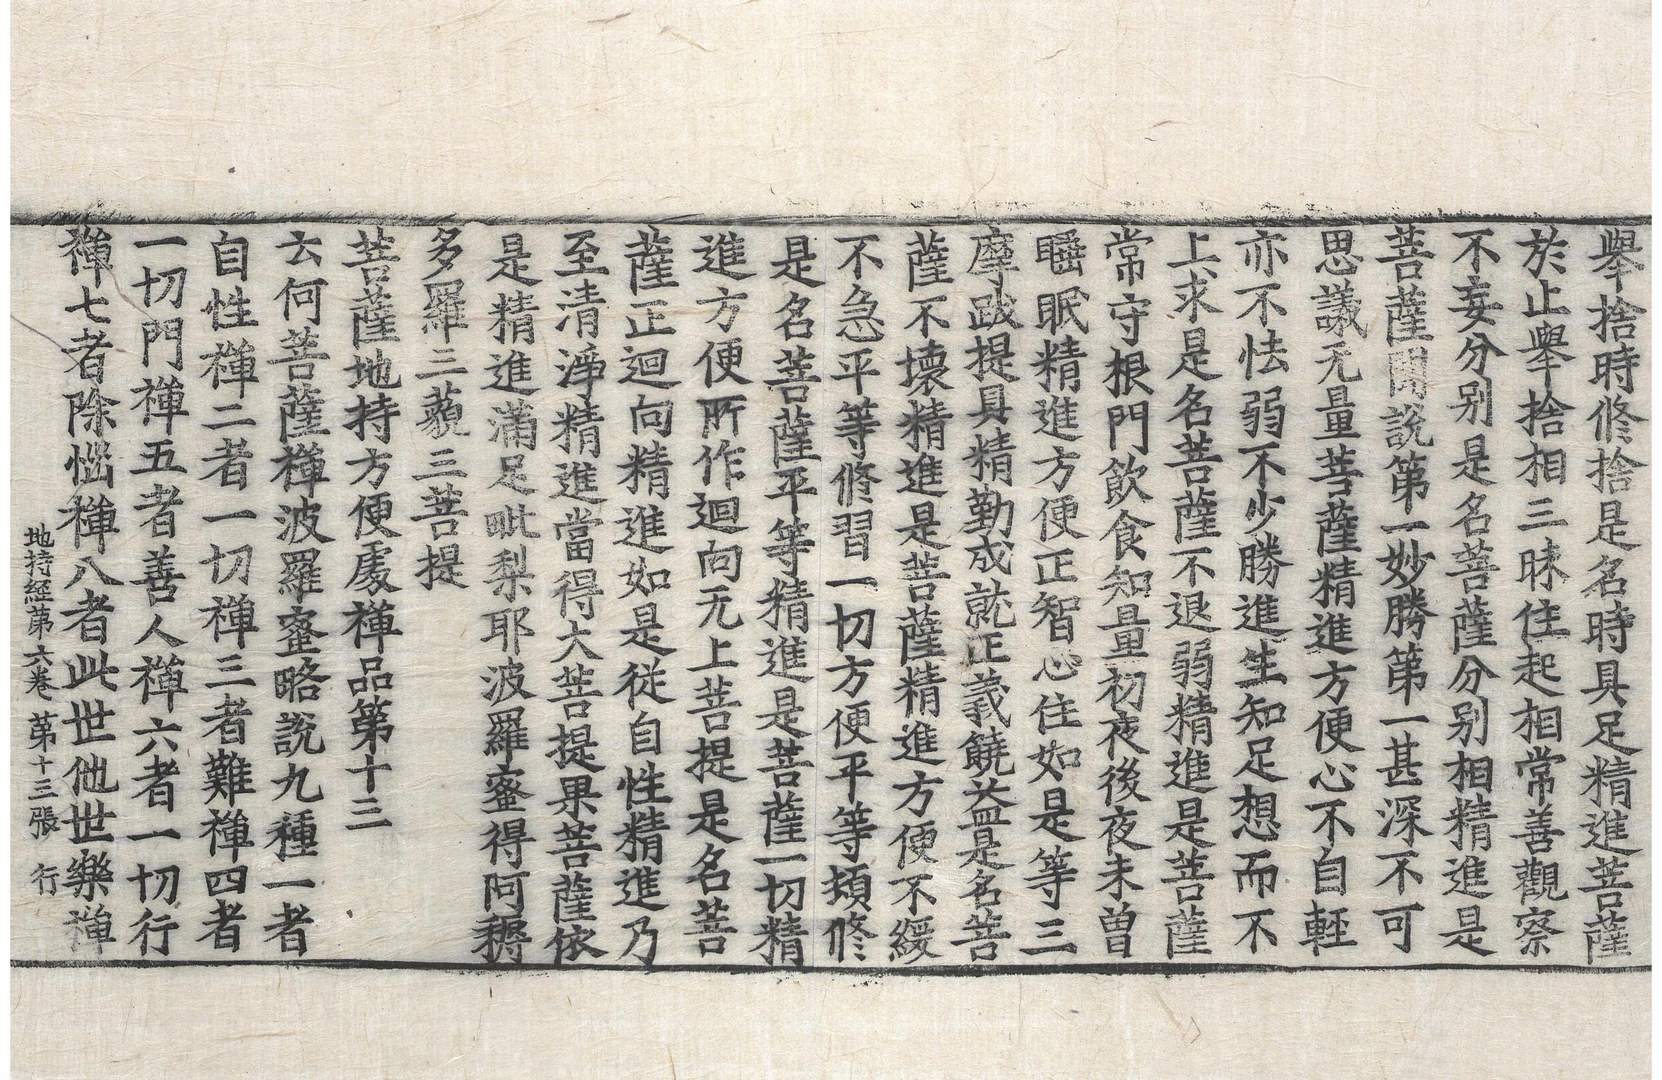 舉捨時修捨是名時具足精進菩薩
於止舉捨相三昧住起相常善觀察
不妄分别是名菩薩分别相精進是
菩薩聞說第一妙勝第一甚深不可
思議无量菩薩精進方便心不自輕
亦不怯弱不少勝進生知足想而不
上求是名菩薩不退弱精進是菩薩
常守根門飲食知量初夜後夜未曽
睡眠精進方便正智心住如是等三
摩跋提具精勤成就正義饒益是名菩
薩不壞精進是菩薩精進方便不緩
不急平等修習一切方便平等頓修
是名菩薩平等精進是菩薩一切精
進方便所作迴向无上菩提是名菩
薩正迴向精進如是從自性精進乃
至清淨精進當得大菩提果菩薩依
是精進滿足毗梨耶波羅蜜得阿耨
多羅三藐三菩提
菩薩地持方便處禪品第十三
云何菩薩禪波羅蜜略說九種一者
自性禪二者一切禪三者難禪四者
一切門禪五者善人禪六者一切行
禪七者除惱禪八者此世他世樂禪
地持經第六卷 第十三張 行